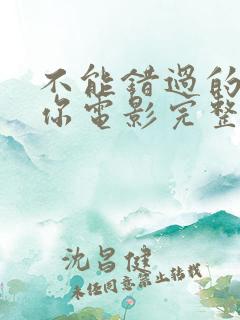 不能错過的
你電影完整
沈昌健
未经同意禁止转载